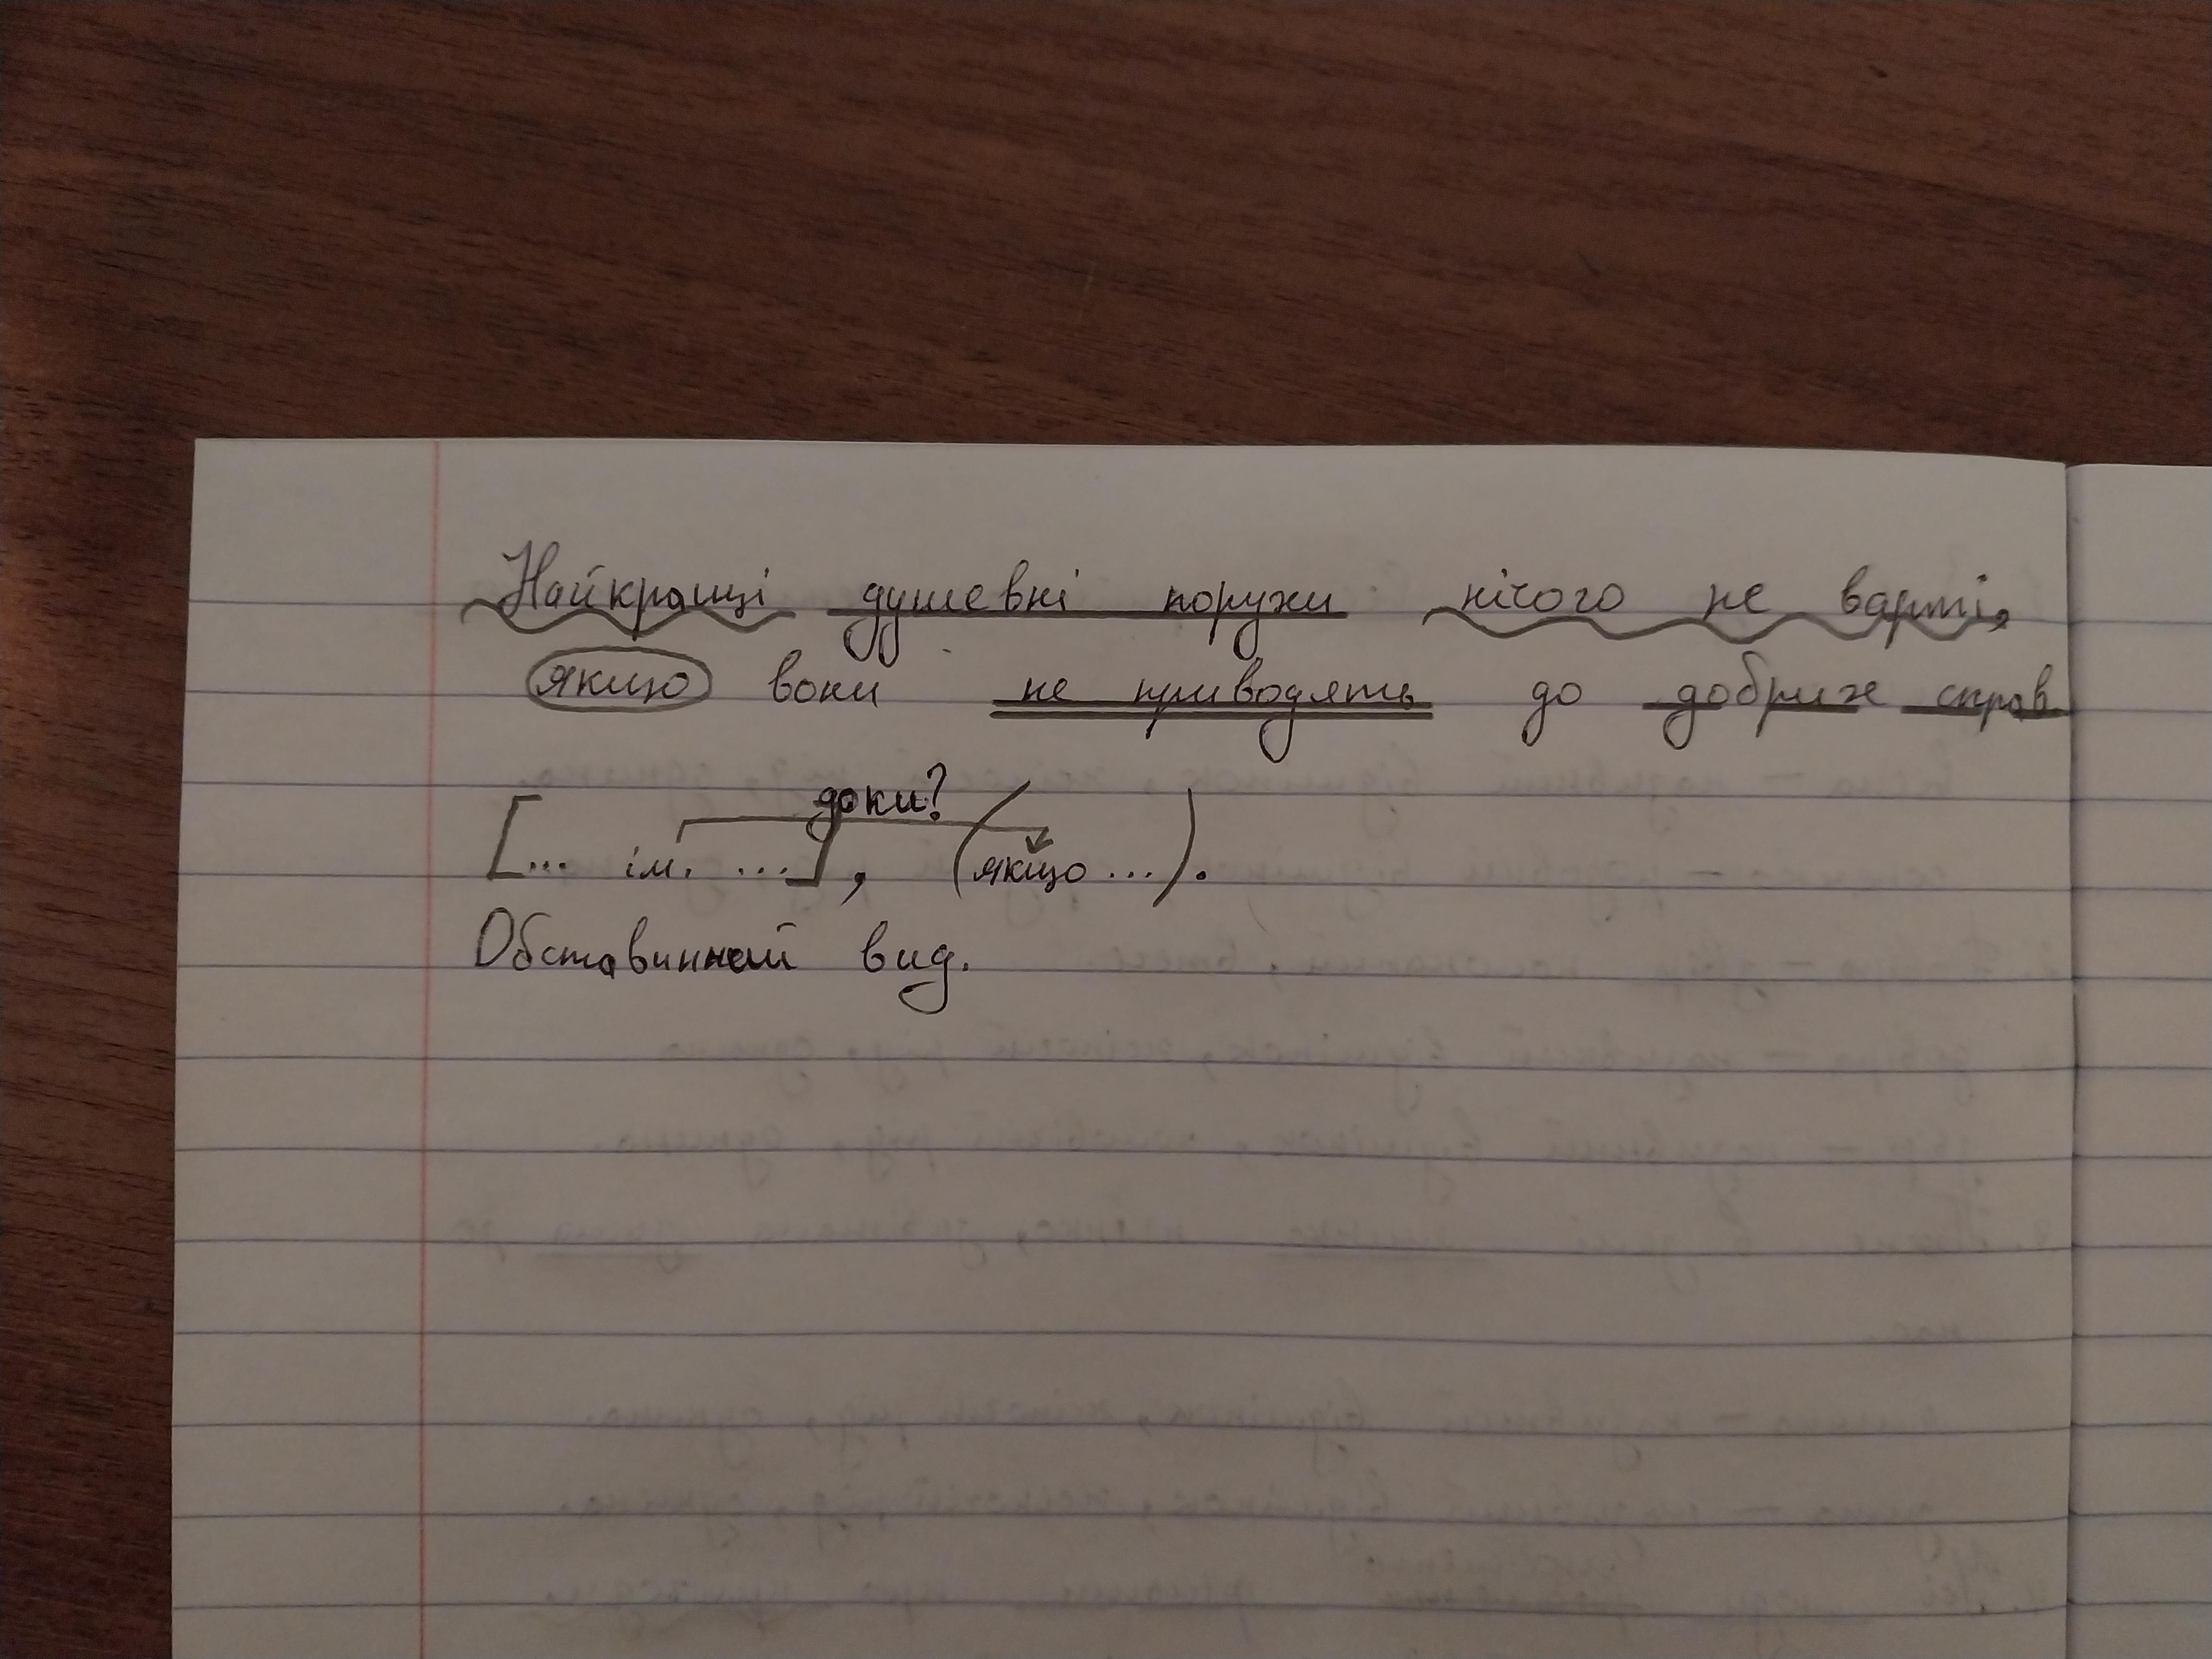 Найкращі душевні порухи нічого не варті,
якщо вони не приводять до добрих справ.
доки?
[... ім. ...], (якщо ...).
Обставинний вид.